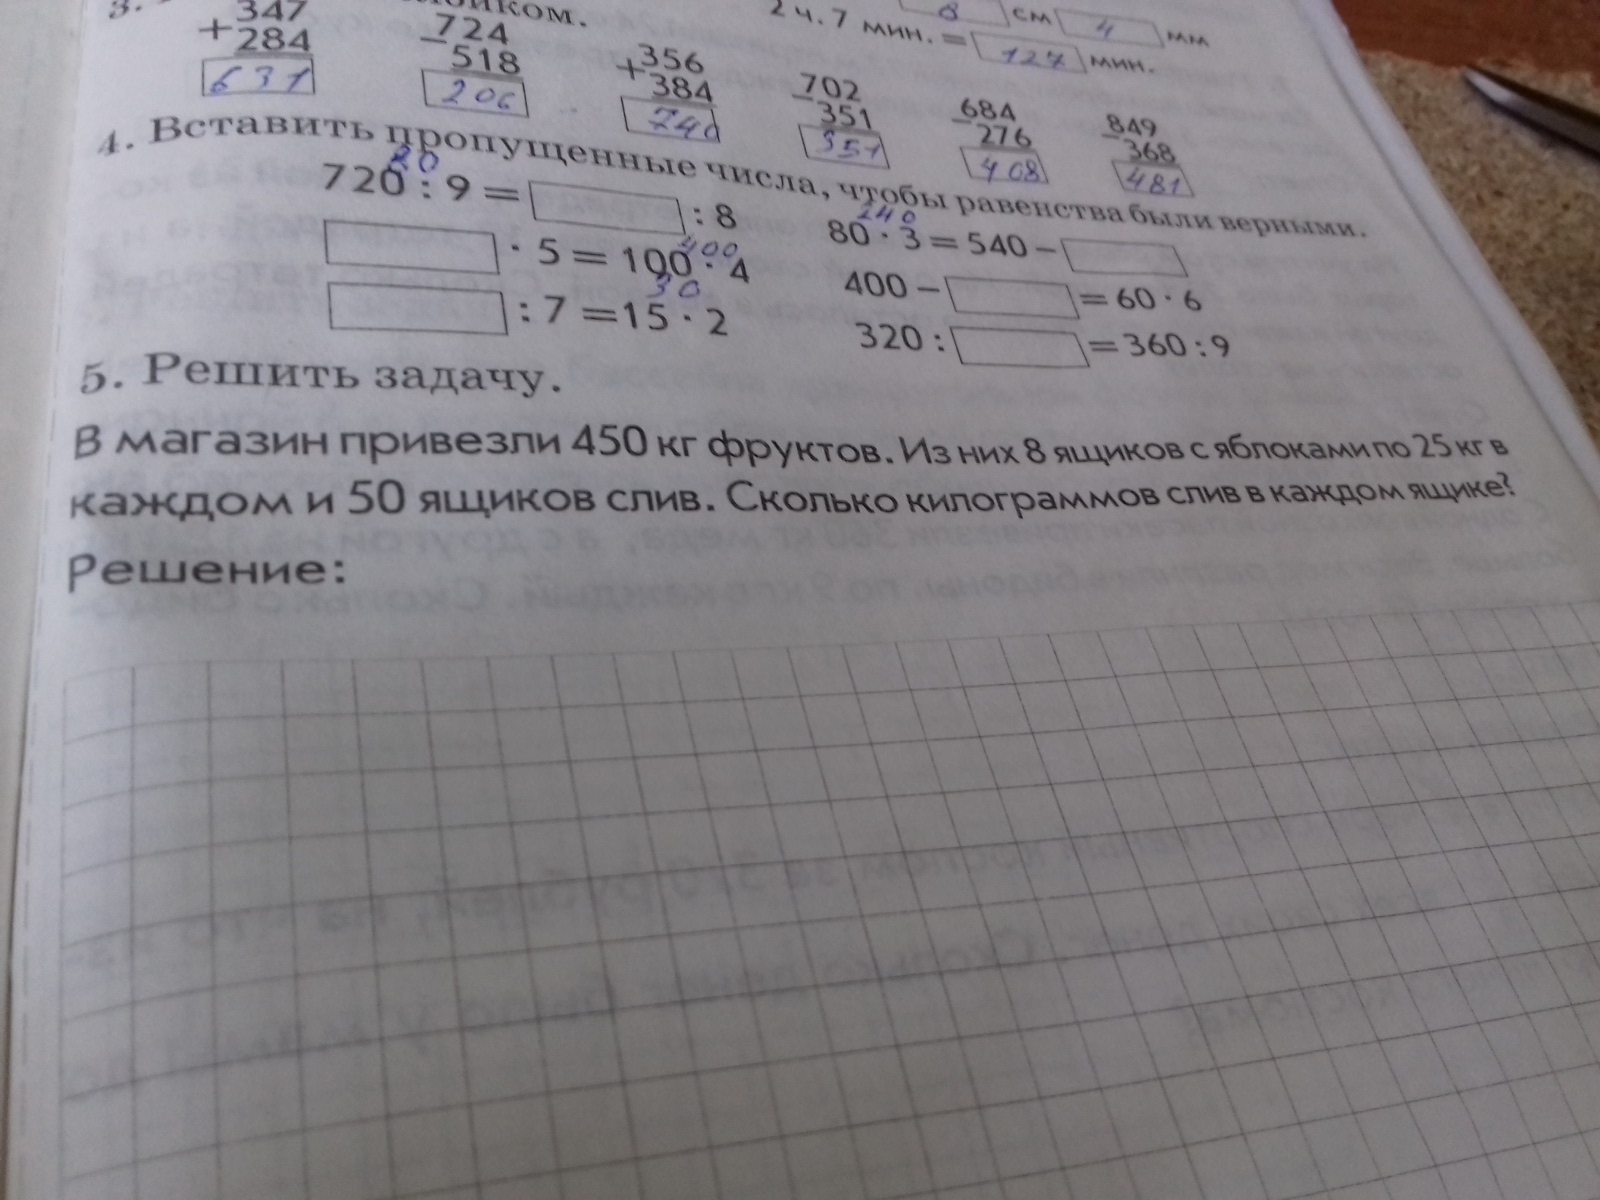 3.
ком.
8 см 4 мм
2 ч. 7 мин. = 127 мин.
+ 347 284 631
− 724 518 206
+ 356 384 740
− 702 351 351
− 684 276 408
− 849 368 481
4. Вставить пропущенные числа, чтобы равенства были верными.
80
720 : 9 = : 8
240
80 · 3 = 540 −
400
· 5 = 100 · 4
400 − = 60 · 6
30
: 7 = 15 · 2
320 : = 360 : 9
5. Решить задачу.
В магазин привезли 450 кг фруктов. Из них 8 ящиков с яблоками по 25 кг в
каждом и 50 ящиков слив. Сколько килограммов слив в каждом ящике?
Решение: